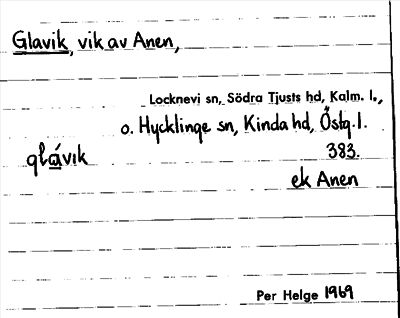 Glavik, vik av Anen,
Locknevi sn, Södra Tjusts hd, Kalm. l.,
o. Hycklinge sn, Kinda hd, Östg. l.
glávik
383.
ek Anen
Per Helge 1969